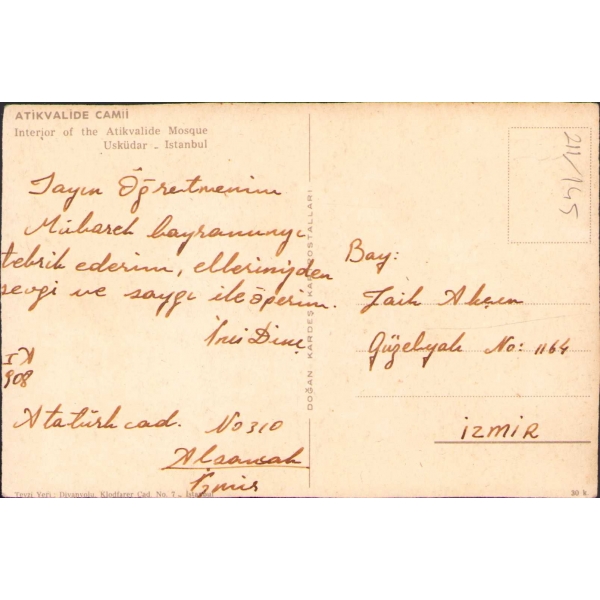 ATİKVALİDE CAMİİ
Interior of the Atikvalide Mosque
Usküdar - Istanbul
Sayın Öğretmenim
Mübarek bayramınızı
tebrik ederim, ellerinizden
sevgi ve saygı ile öperim.
Dinç
908
Atatürk cad. No 310
Alsancak
İzmir
Tevzi Yeri: Divanyolu, Klodfarer Cad. No. 7 - İstanbul
DOĞAN KARDEŞ KARTPOSTALLARI
211/145
Bay:
Faik Akçın
Güzelyalı No: 1164
İZMİR
30 k.